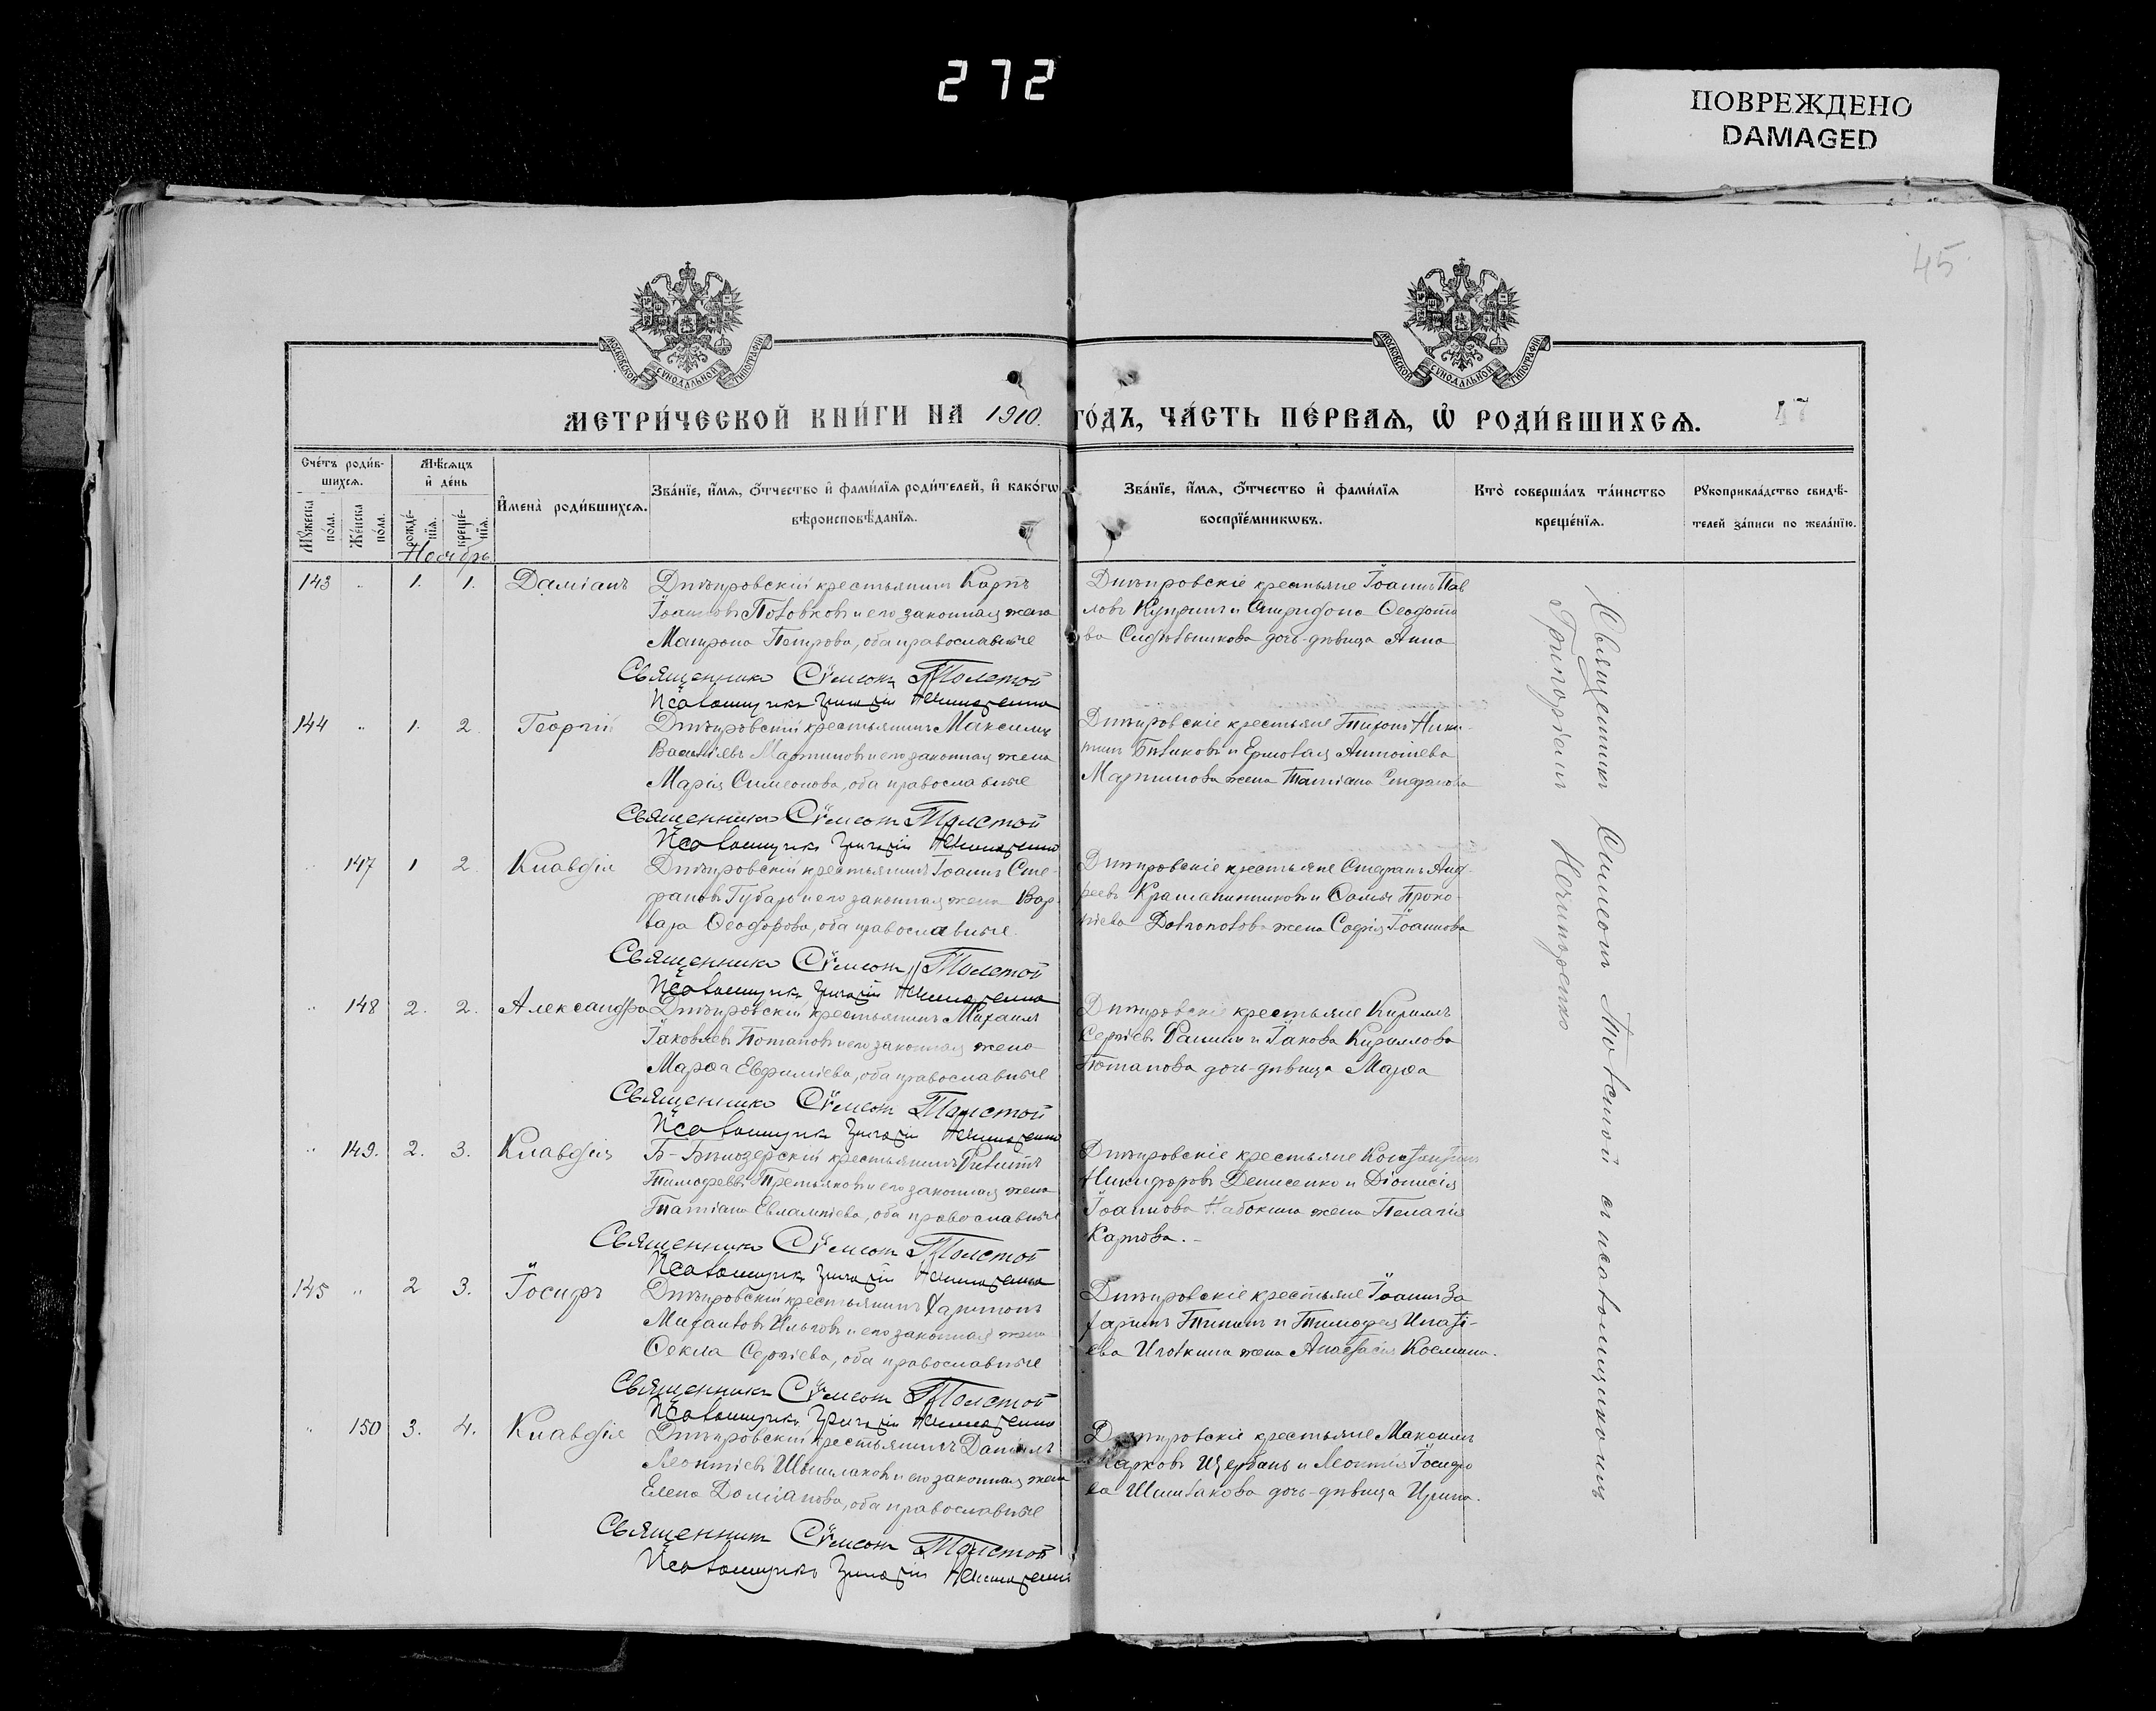 272
ПОВРЕЖДЕНО
DAMAGED
45
МОСКОВСКОЙ СУНОДАЛЬНОЙ ТИПОГРАФІИ
МОСКОВСКОЙ СУНОДАЛЬНОЙ ТИПОГРАФІИ
МЕТРИ́ЧЕСКОЙ КНИ́ГИ НА 1910. ГО́ДЪ, ЧА́СТЬ ПЕ́РВАѦ, Ѡ҆ РОДИ́ВШИХСѦ.
47
Сче́тъ роди́в-
шихсѧ.
Мѣ́сѧцъ
и҆ де́нь
И҆мена̀ роди́вшихсѧ.
Зва́нїе, и҆́мѧ, ѻ҆́тчество и҆ фами́лїѧ роди́телей, и҆ како́гѡ
вѣроисповѣ́данїѧ.
Зва́нїе, и҆́мѧ, ѻ҆́тчество и҆ фами́лїѧ
воспрїе́мникѡвъ.
Кто̀ соверша́лъ та́инство
креще́нїѧ.
Рꙋкоприкла́дство свидѣ́-
телей за́писи по жела́нїю.
Мꙋ́жеска
по́ла.
Же́нска
по́ла.
рожде́-
нїѧ.
креще́-
нїѧ.
Ноябрь
143 " 1. 1. Даміанъ Днѣпровскій крестьянинъ Карпъ
Іоанновъ Половковъ и его законная жена
Матрона Петрова, оба православные
Священникъ Сѵмеонъ Толстой
Псаломщикъ Григорій Нечипоренко
Днѣпровскіе крестьяне Іоаннъ Пав
ловъ Купринъ и Спиридона Ѳеодото
ва Сидѣльникова дочь-дѣвица Анна
144 " 1. 2. Георгій Днѣпровскій крестьянинъ Максимъ
Васильевъ Мартыновъ и его законная жена
Марія Симеонова, оба православные
Священникъ Сѵмеонъ Толстой
Псаломщикъ Григорій Нечипоренко
Днѣпровскіе крестьяне Тихонъ Ники-
тинъ Бѣликовъ и Ермолая Антоніева
Мартынова жена Татіана Стефанова
" 147 1 2. Клавдія Днѣпровскій крестьянинъ Іоаннъ Сте-
фановъ Губарь и его законная жена Вар
вара Ѳеодорова, оба православные.
Священникъ Сѵмеонъ Толстой
Псаломщикъ Григорій Нечипоренко
Днѣпровскіе крестьяне Стефанъ Анд-
реевъ и Ѳомы Проко-
піева жена Софія Іоаннова
" 148 2. 2. Александра Днѣпровскій крестьянинъ Михаилъ
Іаковлевъ Потаповъ и его законная жена
Марѳа Евфиміева, оба православные
Священникъ Сѵмеонъ Толстой
Псаломщикъ Григорій Нечипоренко
Днѣпровскіе крестьяне Кириллъ
Сергіевъ и Іакова Кириллова
Потапова дочь-дѣвица Марѳа
" 149. 2. 3. Клавдія Б-Бѣлозерскій крестьянинъ Филиппъ
Тимофеевъ Третьяковъ и его законная жена
Татіана Евлампіева, оба православные
Священникъ Сѵмеонъ Толстой
Псаломщикъ Григорій Нечипоренко
Днѣпровскіе крестьяне Константинъ
Никифоровъ Денисенко и Діонисія
Іоаннова Набокина жена Пелагія
Карпова. -
145 " 2 3. Іосифъ Днѣпровскій крестьянинъ Харитонъ
Михаиловъ Ильговъ и его законная жена
Ѳекла Сергіева, оба православные
Священникъ Сѵмеонъ Толстой
Псаломщикъ Григорій Нечипоренко
Днѣпровскіе крестьяне Іоаннъ За
харинъ и Тимофея Игнаті-
ева Иголкина жена Анастасія Космина.
" 150 3. 4. Клавдія Днѣпровскій крестьянинъ Даніилъ
Леонтіевъ Шишлаковъ и его законная жена
Елена Даміанова, оба православные
Священникъ Сѵмеонъ Толстой
Псаломщикъ Григорій Нечипоренко
Днѣпровскіе крестьяне Максимъ
Марковъ Щербань и Леонтія Іосифо
ва Шишлакова дочь-дѣвица Ирина.
Священникъ Симеонъ Толстой съ псаломщикомъ
Григоріемъ Нечипоренко